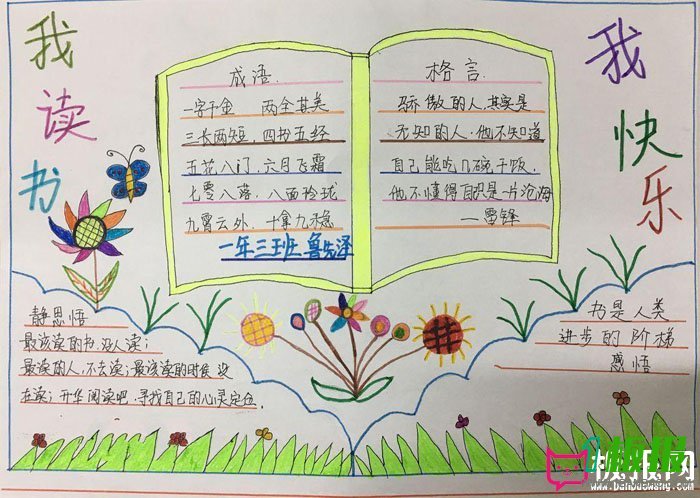 我读书
我快乐
成语
一字千金 两全其美
三长两短，四书五经
五花八门，六月飞霜
七零八落，八面玲珑
九霄云外，十拿九稳
一年三班 鲁先泽
格言
骄傲的人，其实是
无知的人，他不知道
自己能吃几碗干饭，
他不懂得自己只是一片沧海
——雷锋
静思悟
最该读的书，没人读；
最该读的人，不去读；最该读的时候 没
在读；开华阅读吧，寻找自己的心灵定位。
书是人类
进步的阶梯
感悟
板报网
www.banbaowang.com